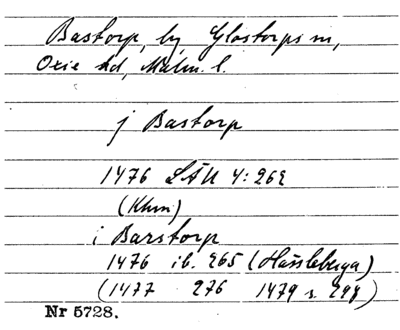 Bastorp, by, Glostorps sn,
Oxie hd, Malm. l.
j Bastorp
1476 LÄU 4:262
(Khvn)
i Barstorp
1476 ib. 265 (Hassleberga)
(1477 276 1479 s. 298)
Nr 5728.